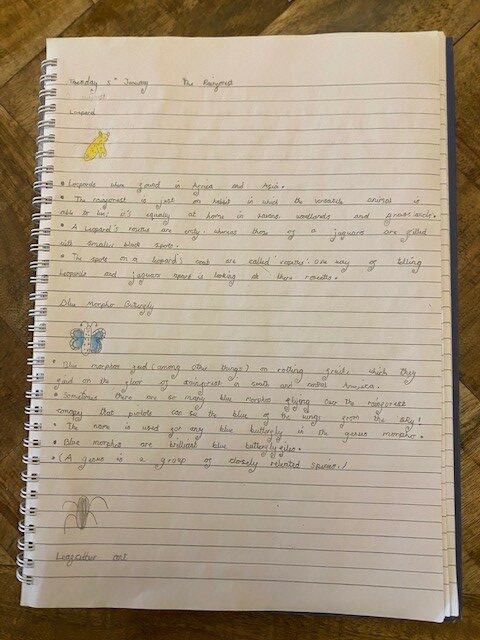 Tuesday 5th January The Rainforest
Leopard
• Leopards when found in Africa and Asia.
• The rainforest is just on habit in which the versatile animal is
able to live, it's equally at home in savana woodlands and grasslands.
• A leopard's rosettes are empty, whereas those of a jaguars are filled
with smaller black spots.
• The spots on a leopard's coat are called 'rosettes'. One way of telling
leopards and jaguars apart is looking at there rosettes.
Blue Morpho Butterfly
• Blue morphos feed (among other things) on rotting fruit, which they
find on the floor of rainforest in south and central America.
• Sometimes there are so many blue morphos flying over the rainforest
canopy that pivlots can see the blue of the wings from the sky!
• The name is used for any blue butterfly in the genus morpho.
• Blue morphos are brilliant blue butterflyies.
• (A genus is a group of closely releted species.)
Leafcutter ant